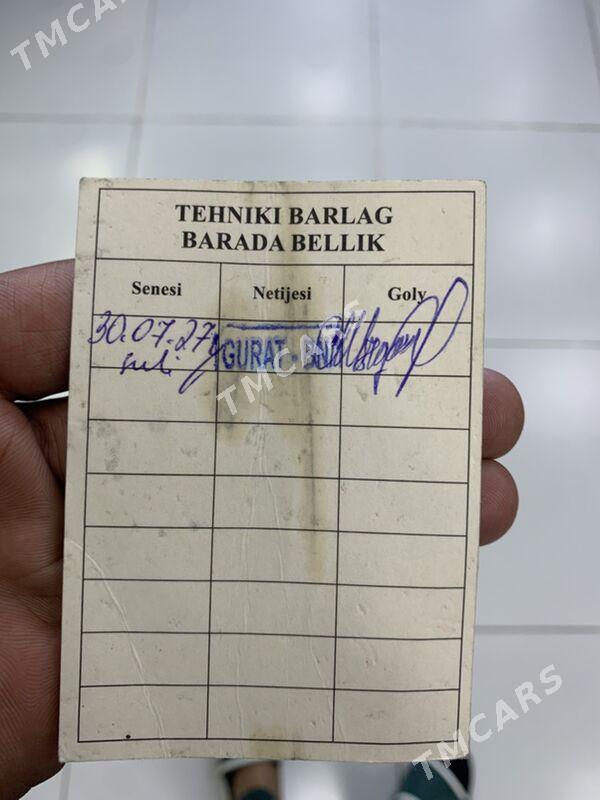 TMCARS
TEHNIKI BARLAG
BARADA BELLIK
Senesi Netijesi Goly
30.07.27
GURAT
TMCARS
TMCARS